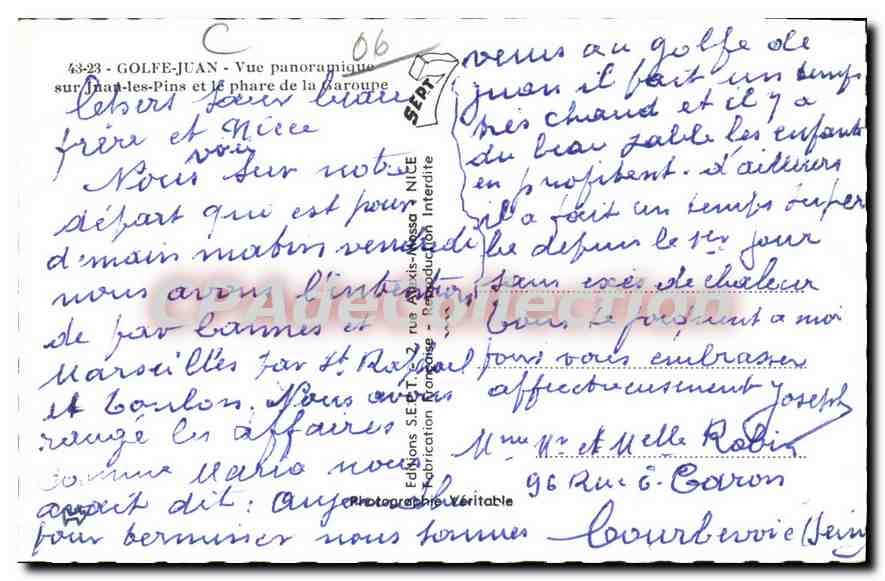 C
06
43-23 - GOLFE-JUAN - Vue panoramique
sur Juan-les-Pins et le phare de la Garoupe
SEPT
Chers sœur beau
frère et Nièce
Nous voici sur notre
départ qui est pour
demain matin vendredi
nous avons l'intention
de par Cannes et
Marseilles par St Raphael
et Toulon. Nous avons
rangé les affaires
comme Maria nous
avait dit : Aujourd'hui
pour terminer nous sommes
venus au golfe de
juan il fait un temps
très chaud et il y a
du beau sable les enfants
en profitent. d'ailleurs
il a fait un temps super
be depuis le 1er jour
sans exès de chaleur
tous se joignent a moi
pour vous embrasser
affectueusement Joseph
Mme Mr et Melle Robin
96 Rue E. Caron
Courbevoie (Seine
Editions S.E.P.T. - 2, rue Alexis-Mossa - NICE
Fabrication Française - Reproduction Interdite
Photographie Véritable
CPADeCollection